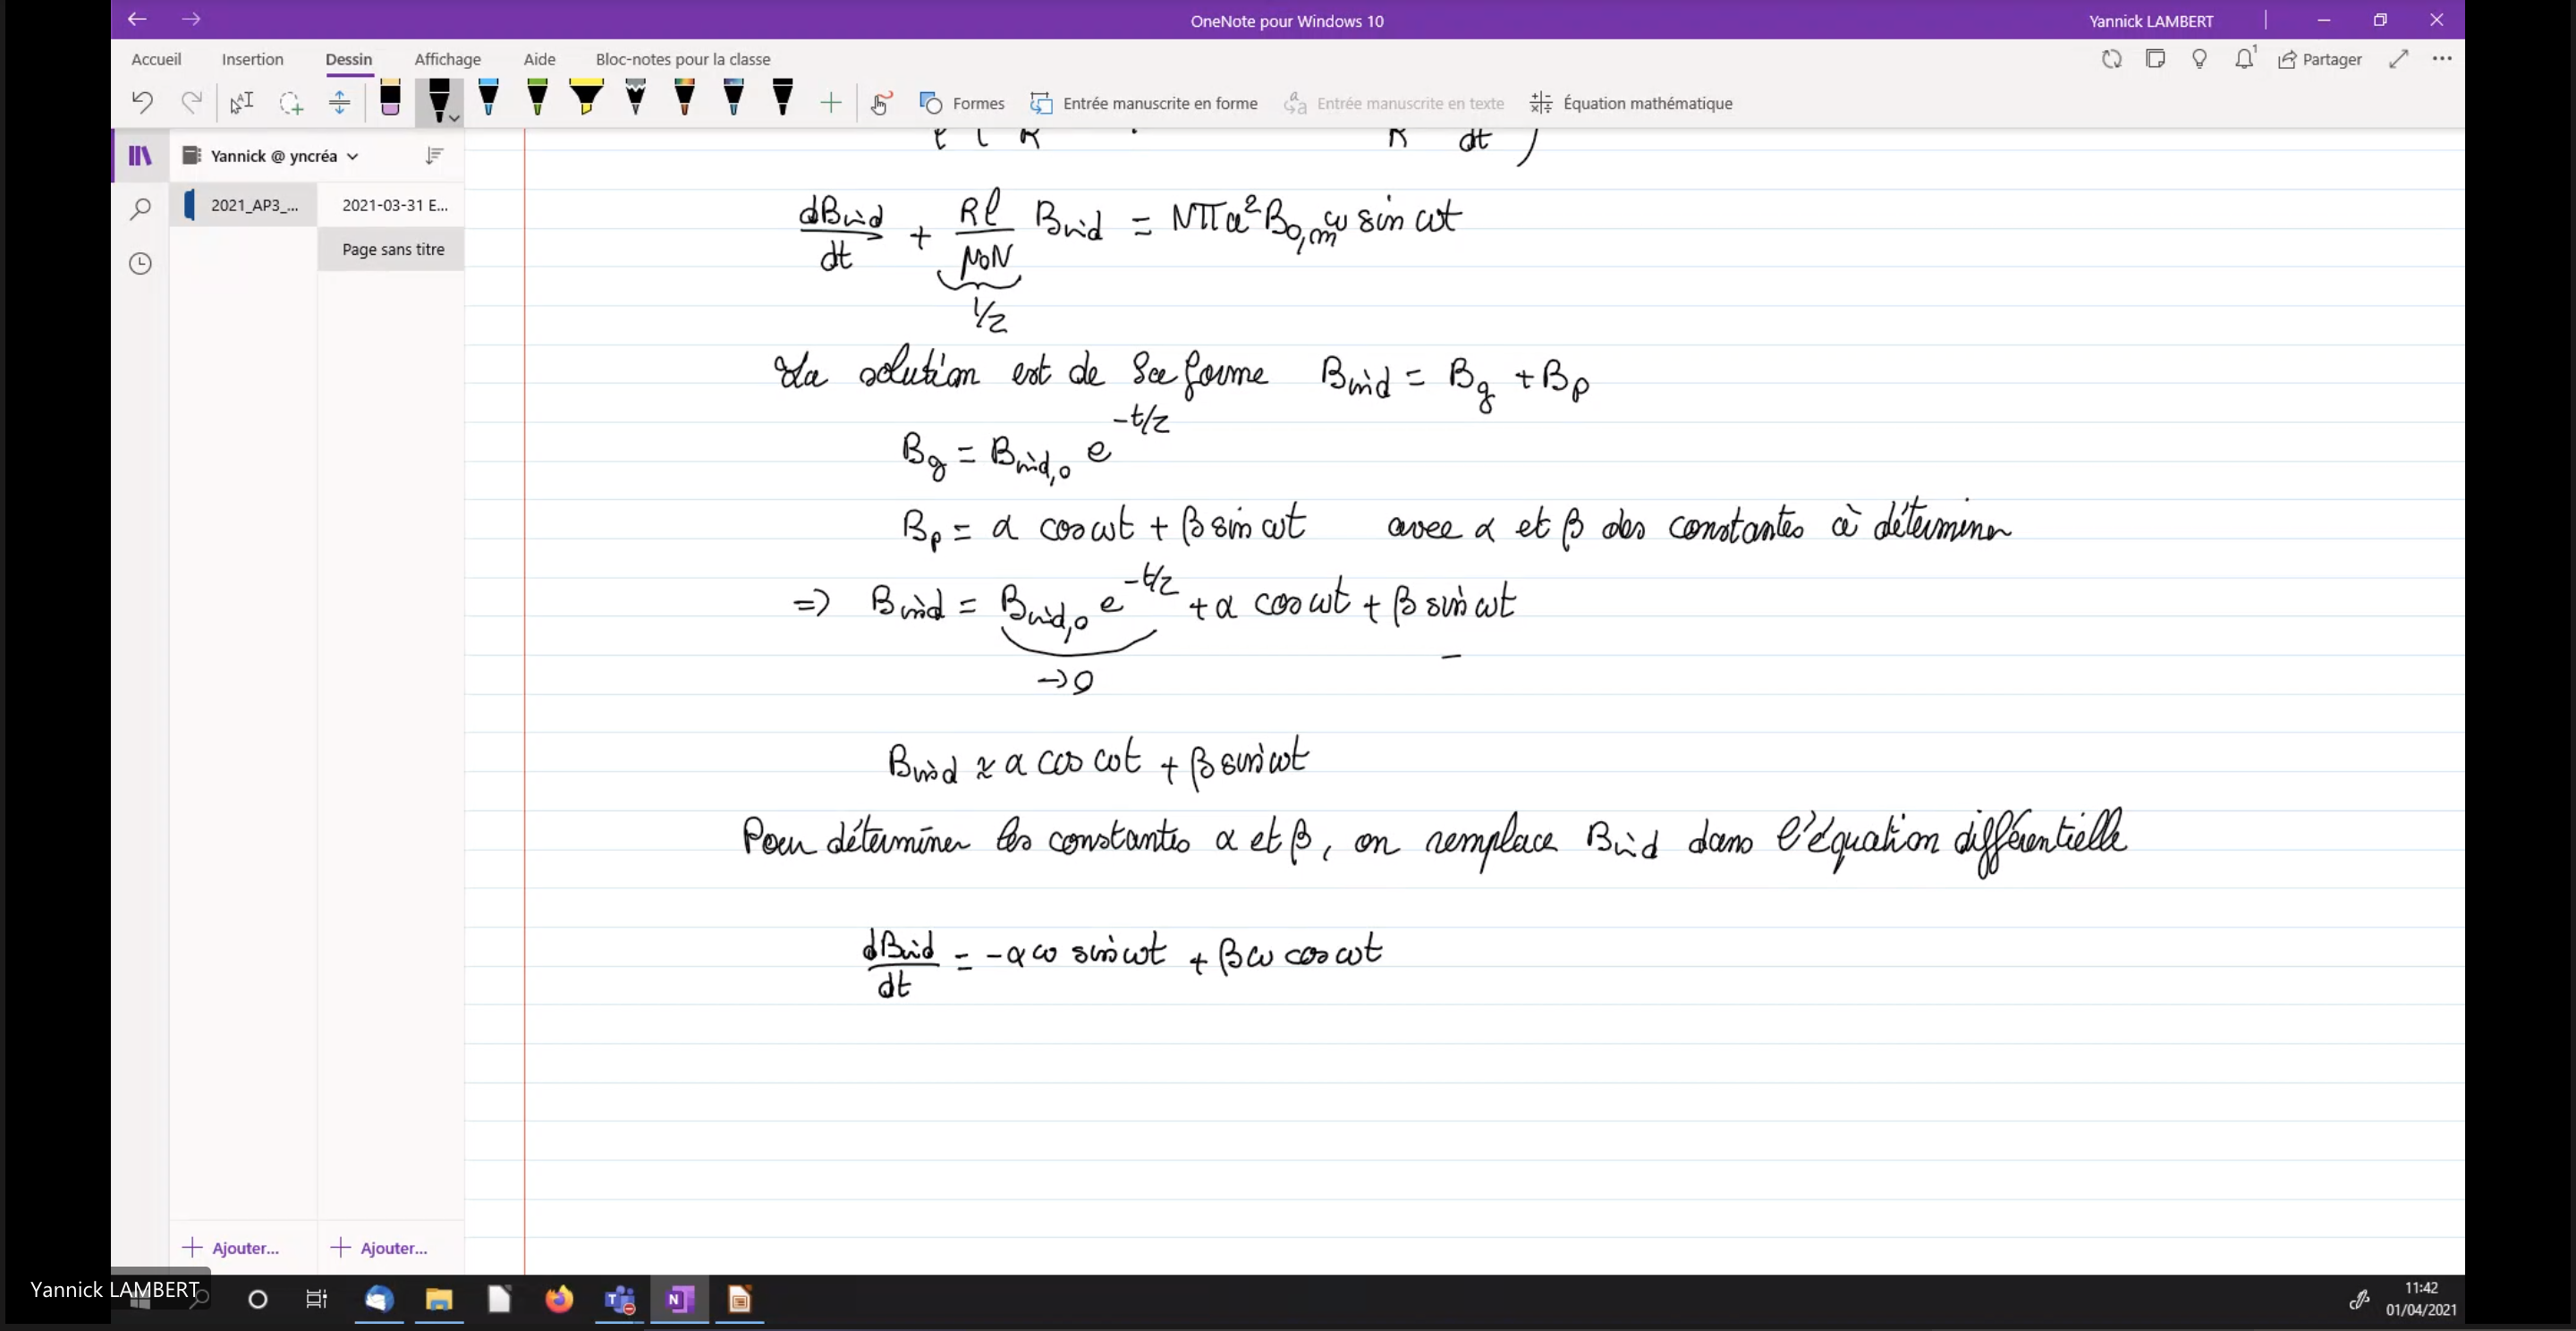 OneNote pour Windows 10
Yannick LAMBERT
Accueil Insertion Dessin Affichage Aide Bloc-notes pour la classe
1
Partager
Formes Entrée manuscrite en forme Entrée manuscrite en texte Équation mathématique
Yannick @ yncréa
2021_AP3_...
2021-03-31 E...
Page sans titre
R R dt )
dBind/dt + Rl/μ0N Bind = Nπa² B0,m ω sin ωt
1/τ
La solution est de la forme Bind = Bg + Bp
Bg = Bind,0 e^-t/τ
Bp = α cos ωt + β sin ωt avec α et β des constantes à déterminer
=> Bind = Bind,0 e^-t/τ + α cos ωt + β sin ωt
→0
Bind ≈ α cos ωt + β sin ωt
Pour déterminer les constantes α et β, on remplace Bind dans l'équation différentielle
dBind/dt = -αω sin ωt + βω cos ωt
Ajouter... Ajouter...
Yannick LAMBERT
11:42
01/04/2021